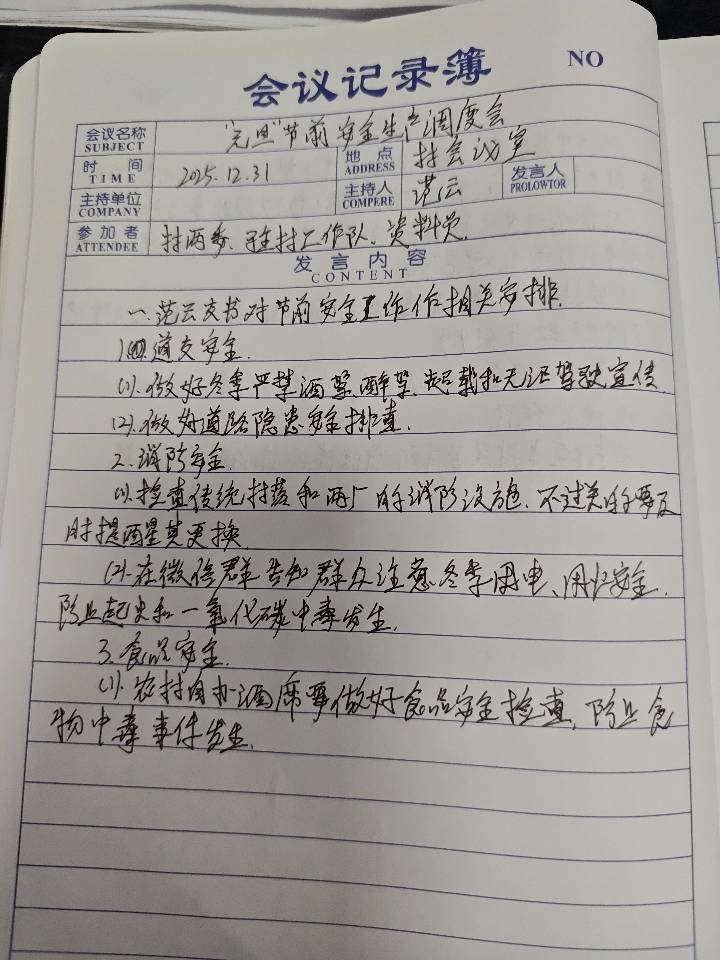 会议记录簿 NO
会议名称 SUBJECT "元旦"节前安全生产调度会
时间 TIME 2025.12.31 地点 ADDRESS 村会议室
主持单位 COMPANY 主持人 COMPERE 范云 发言人 PROLOWTOR
参加者 ATTENDEE 村两委、驻村工作队、资料员.
发言内容
CONTENT
一.范云支书对节前安全工作作相关安排.
1.道交安全.
(1).做好冬季严禁酒驾、醉驾、超载和无证驾驶宣传
(2).做好道路隐患安全排查.
2.消防安全.
(1).检查传统村落和两厂的消防设施.不过关的要及
时提醒其更换.
(2).在微信群告知群众注意冬季用电、用火安全.
防止起火和一氧化碳中毒发生.
3.食品安全.
(1).农村自办酒席要做好食品安全检查,防止食
物中毒事件发生.